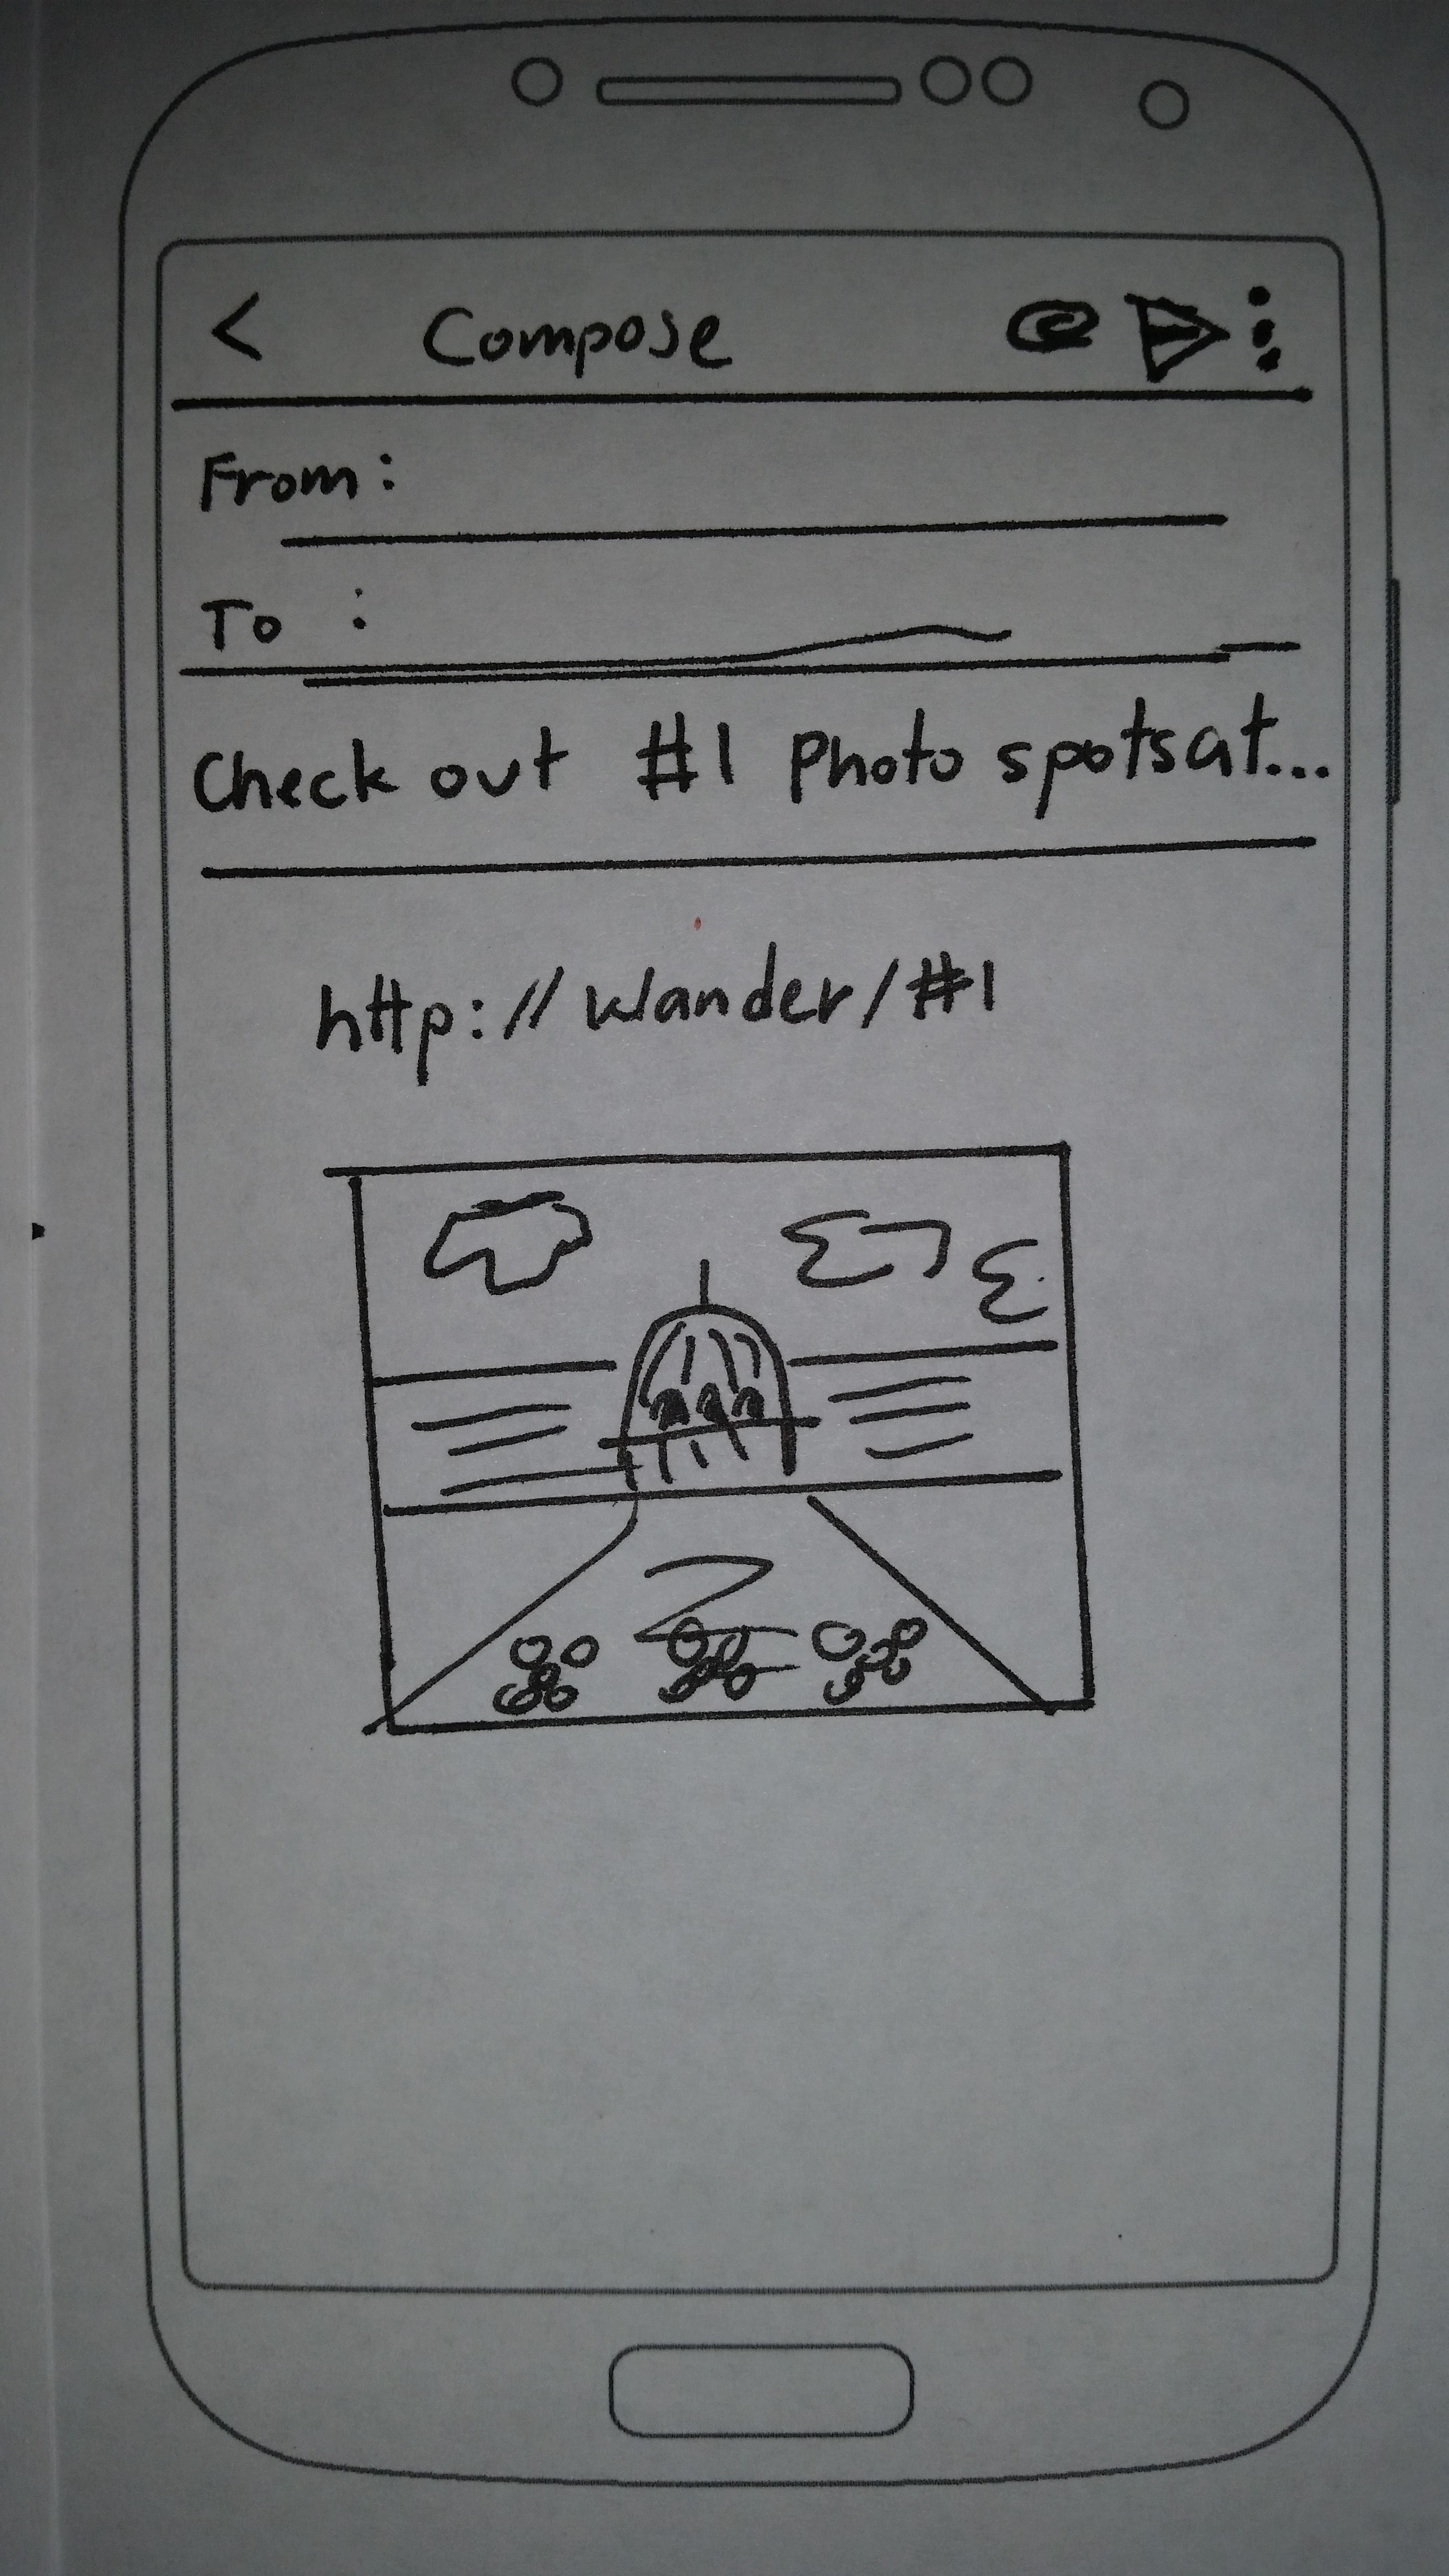 < Compose
From:
To :
Check out #1 Photo spotsat...
http://wander/#1